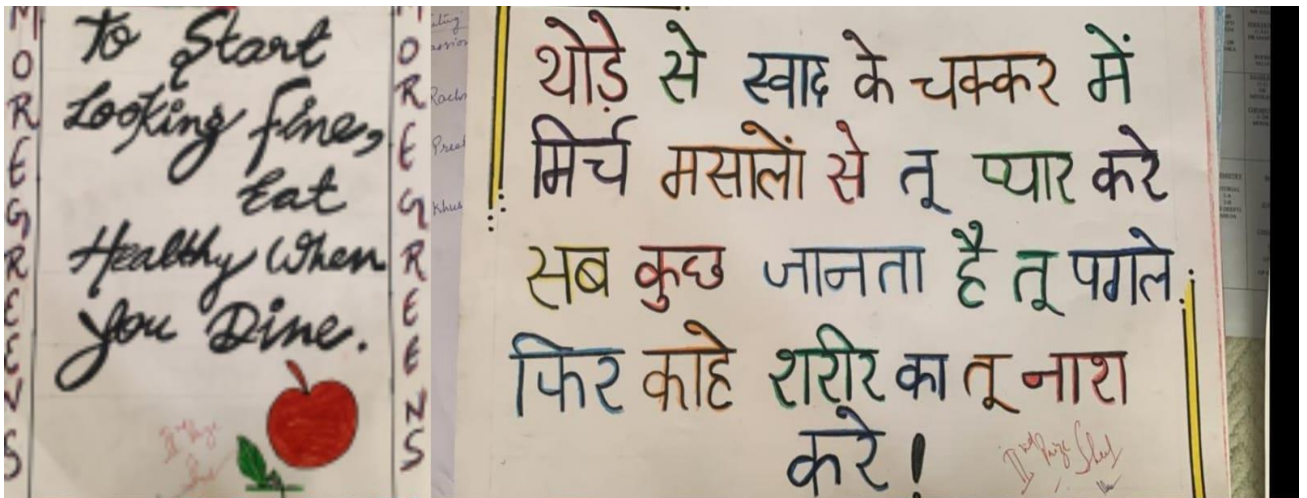 MORE GREENS
To Start
Looking fine,
Eat
Healthy When
you Dine.
MORE GREENS
IInd Prize
थोड़े से स्वाद के चक्कर में
मिर्च मसालों से तू प्यार करे
सब कुछ जानता है तू पगले
फिर काहे शरीर का तू नाश
करे !
IInd Prize